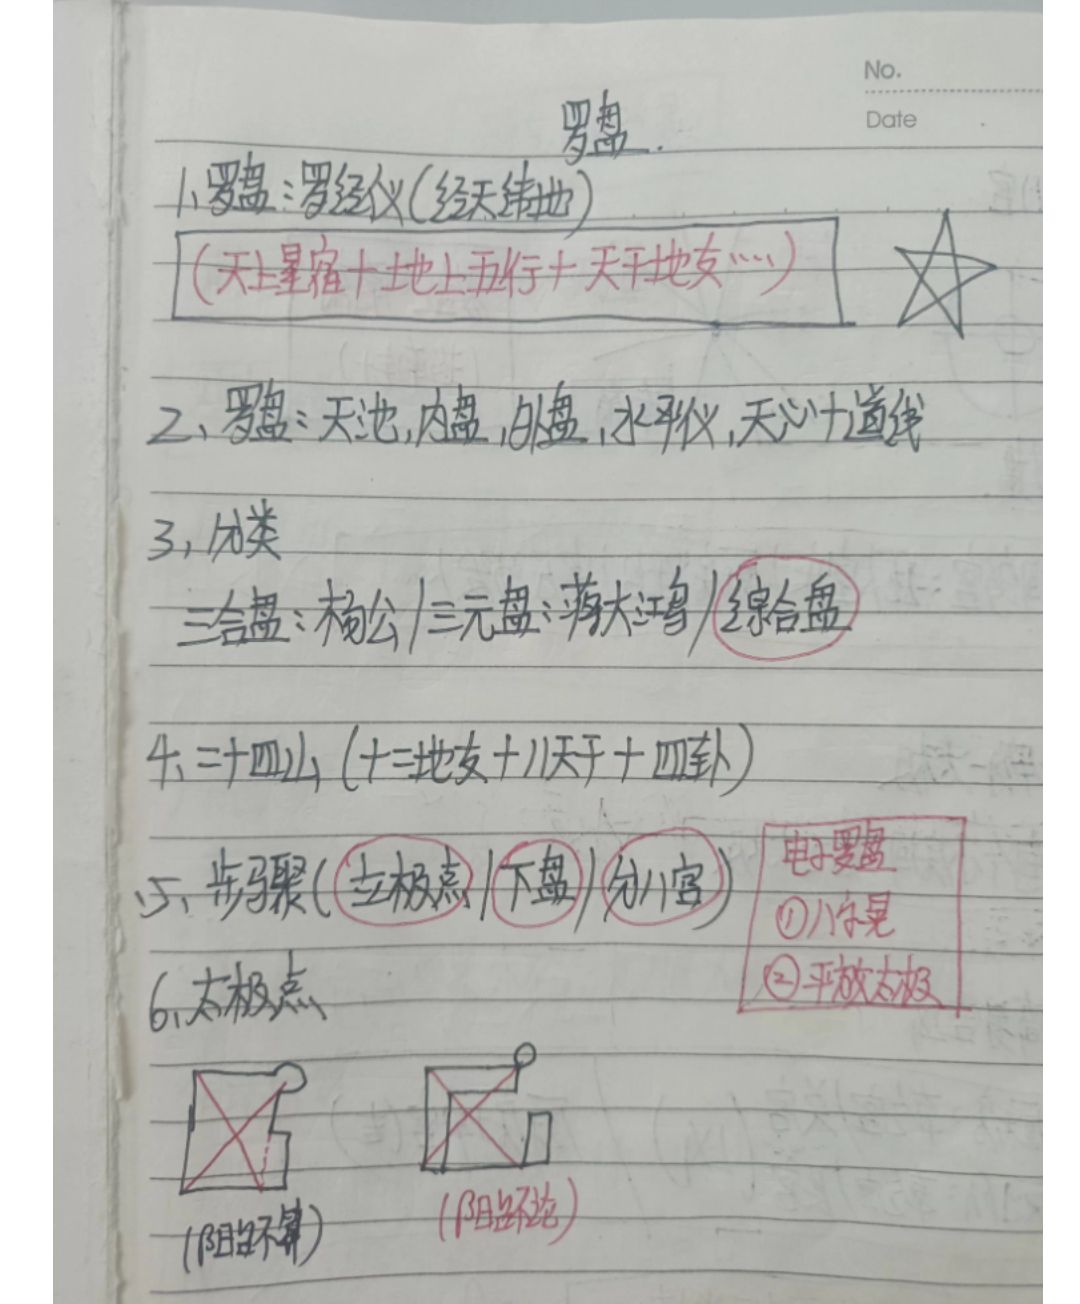 No.
Date
罗盘.
1、罗盘:罗经仪(经天纬地)
(天上星宿+地上五行+天干地支……)
2、罗盘:天池,内盘,外盘,水平仪,天心十道线
3、分类
三合盘:杨公/三元盘:蒋大鸿/综合盘
4、二十四山(十二地支+八天干+四卦)
5、步骤(立极点/下盘/分八宫)
电子罗盘
①八字晃
②平放太极
6、太极点
(阳台不算)
(阳台不论)